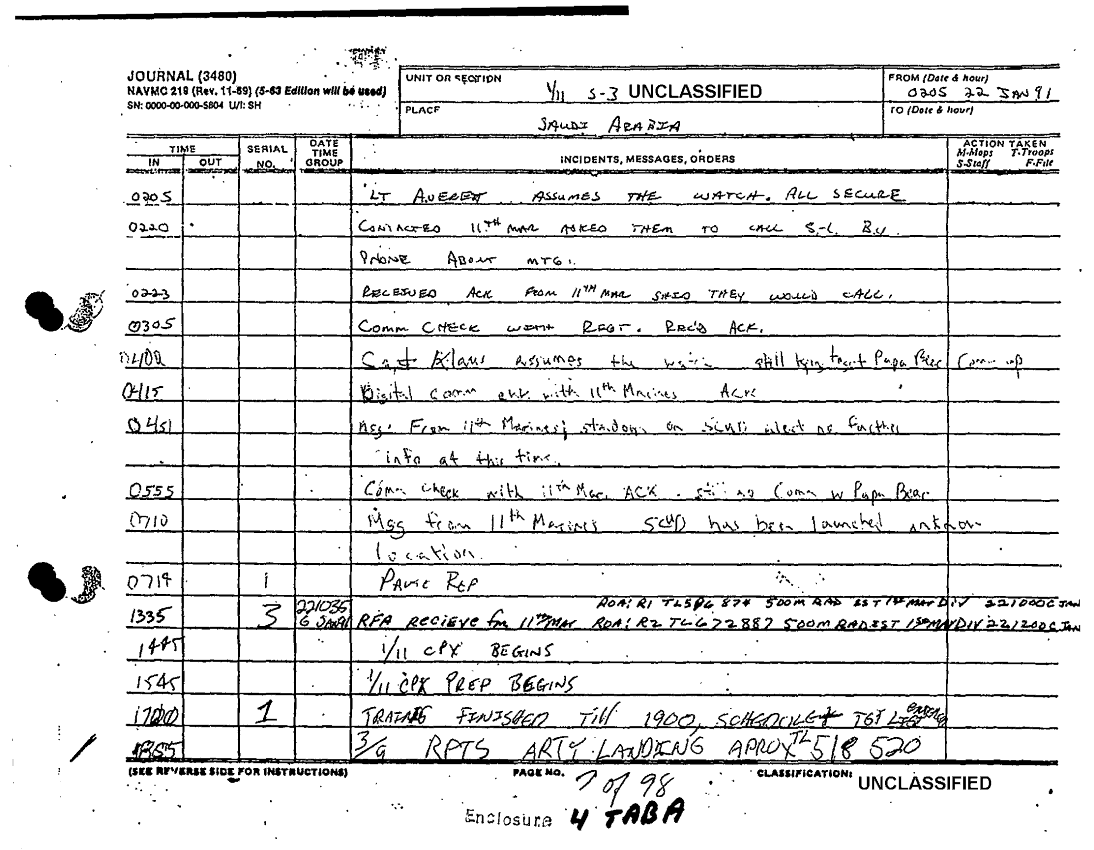 JOURNAL (3480)
NAVMC 219 (Rev. 11-69) (5-63 Edition will be used)
SN: 0000-00-000-5804 U/I: SH
UNIT OR SECTION
1/11 S-3 UNCLASSIFIED
PLACE
SAUDI ARABIA
FROM (Date & hour)
0205 22 JAN 91
TO (Date & hour)
TIME
IN OUT
SERIAL NO.
DATE TIME GROUP
INCIDENTS, MESSAGES, ORDERS
ACTION TAKEN
M-Mops T-Troops
S-Staff F-File
0205 LT AVERETT ASSUMES THE WATCH. ALL SECURE
0220 CONTACTED 11TH MAR ASKED THEM TO CALL S-6 BY
PHONE ABOUT MTG.
0223 RECEIVED ACK FROM 11TH MAR SAID THEY WOULD CALL.
0305 COMM CHECK WITH REGT. REC'D ACK.
0400 Capt assumes the watch still trying to get Papa Bear Comm up
0415 Digital comm chk with 11th Marines ACK
0451 Msg. From 11th Marines; on SCUD alert no further
info at this time.
0555 Comm check with 11th Mar. ACK. still no Comm w Papa Bear
0710 Msg from 11th Marines SCUD has been launched unknown
location.
0714 1 PAUSE REP
ROA: R1 874 500M RAD EST 1ST MAR DIV 221000C JAN
1335 3 221035 RFA RECIEVE fm 11TH MAR ROA: R2 TL 672887 500M RAD EST 1ST MAR DIV 221200C JAN
1445 1/11 CPX BEGINS
1545 1/11 CPX PREP BEGINS
1700 1 FINISHED Till 1900, TGT LIST
3/9 RPTS ARTY LANDING APROX TL 518 520
(SEE REVERSE SIDE FOR INSTRUCTIONS)
PAGE NO. 7 of 98
CLASSIFICATION: UNCLASSIFIED
Enclosure 4 TAB A